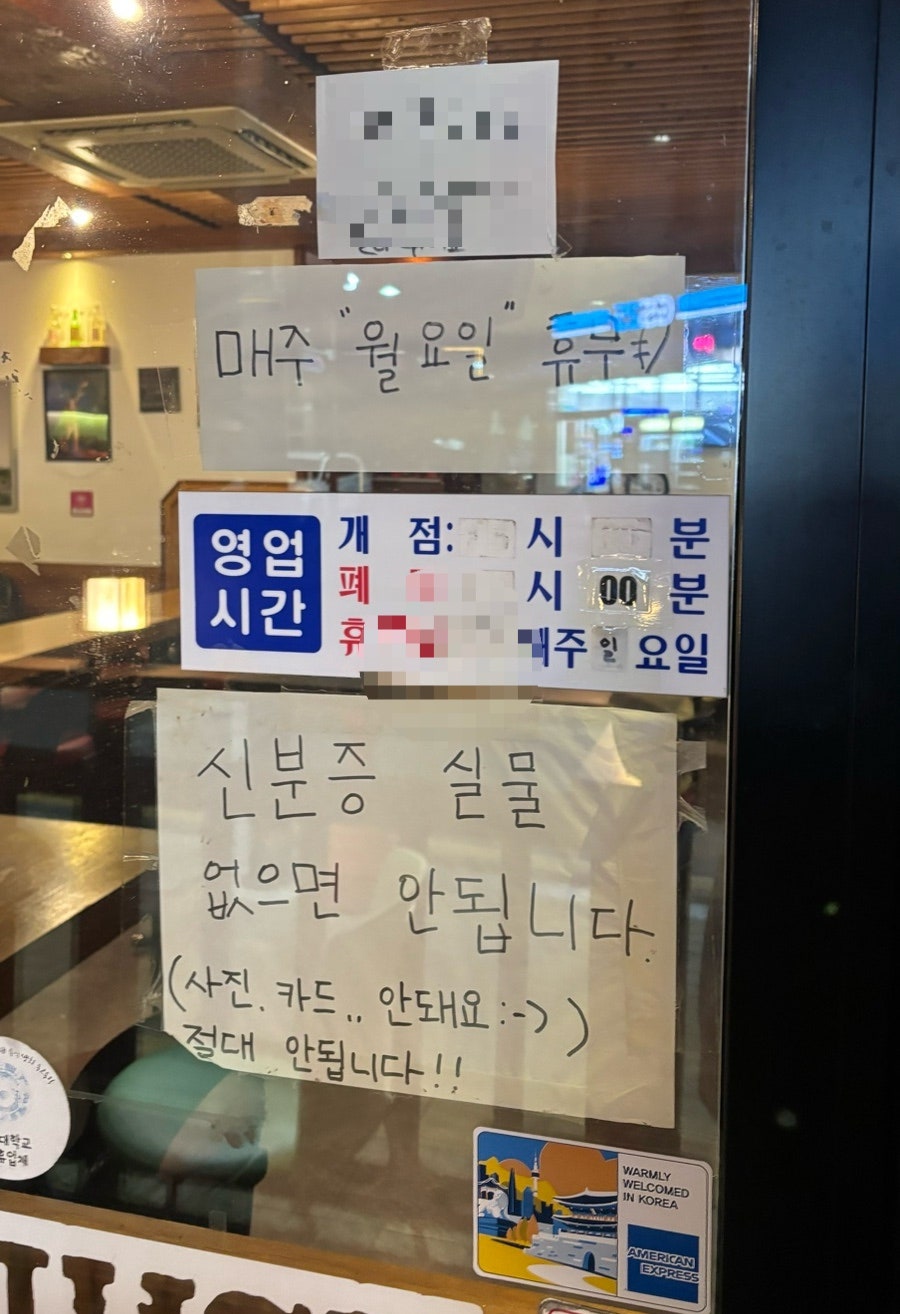 매주 "월요일" 휴무
영업
시간
개 점: 시 분
폐 시 00 분
휴 매주 일 요일
신분증 실물
없으면 안됩니다.
(사진. 카드.. 안돼요 :-) )
절대 안됩니다!!
대학교
WARMLY
WELCOMED
IN KOREA
AMERICAN
EXPRESS